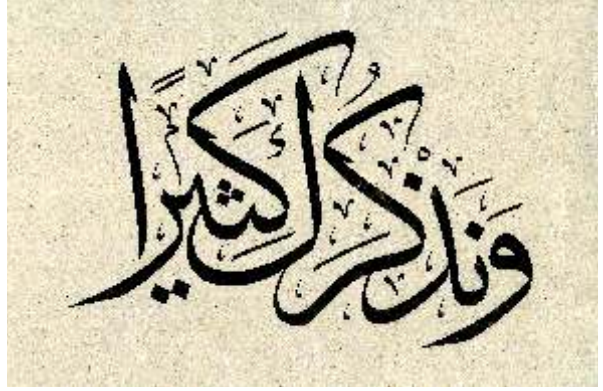 وَنَذْكُرَكَ كَثِيرًا